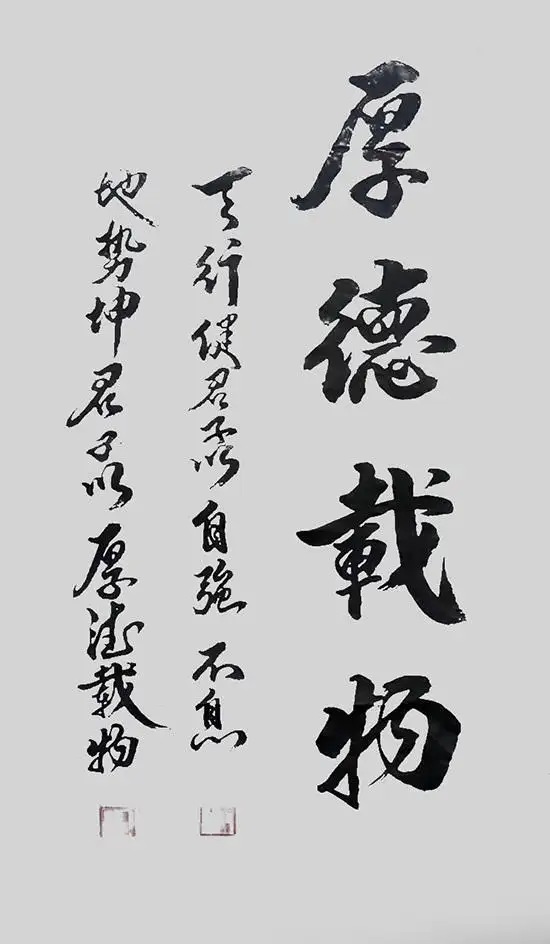 厚德載物
天行健君子以自強不息
地勢坤君子以厚德載物